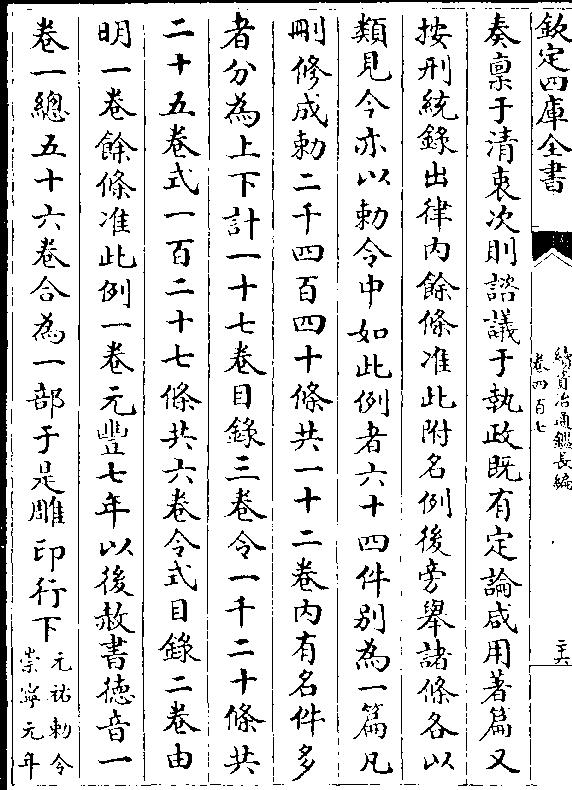 欽定四庫全書
續資治通鑑長編
卷四百七
二十六
奏稟于清衷次則諮議于執政既有定論咸用著篇又
按刑統錄出律内餘條准此附名例後旁舉諸條各以
類見今亦以勅令中如此例者六十四件别為一篇凡
刪修成勅二千四百四十條共一十二卷内有名件多
者分為上下計一十七卷目錄三卷令一千二十條共
二十五卷式一百二十七條共六卷令式目錄二卷由
明一卷餘條准此例一卷元豐七年以後赦書德音一
卷一總五十六卷合為一部于是雕印行下元祐勅令
崇寧元年